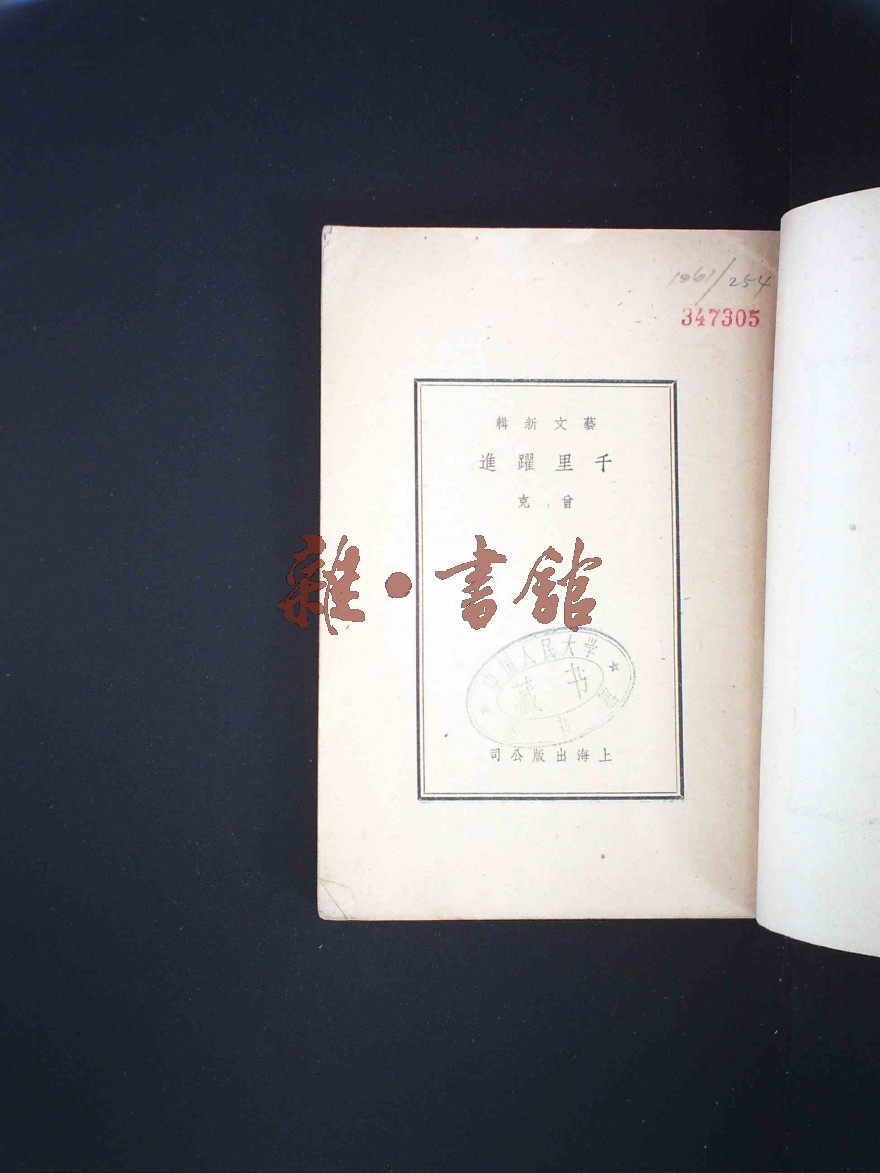 1061/254
347305
藝文新輯
千里躍進
曾克
雜·書館
中国人民大学
藏书
上海出版公司